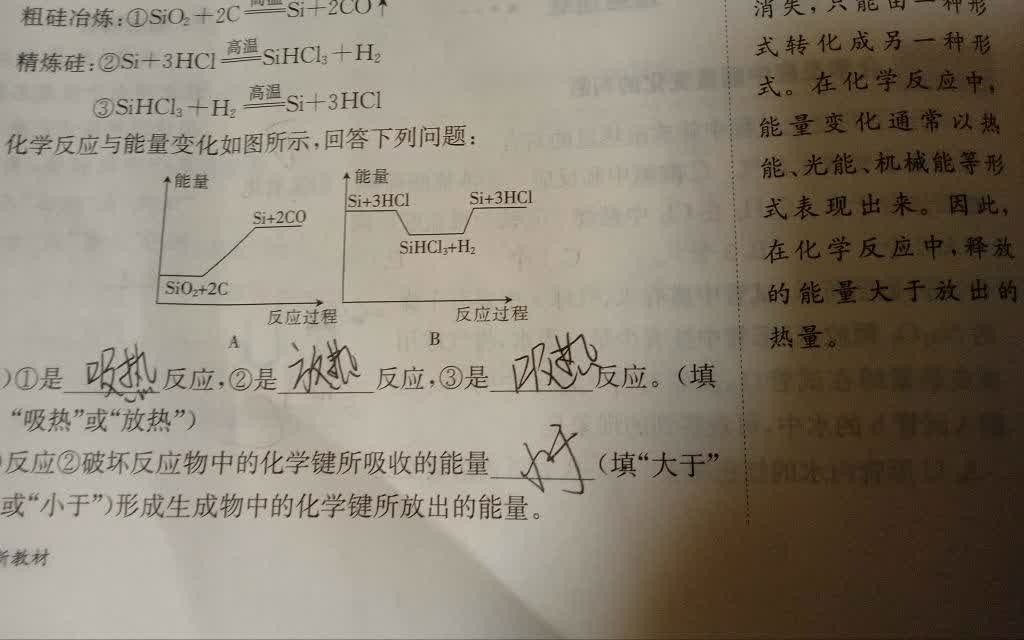 粗硅冶炼:①SiO₂+2C 高温 Si+2CO↑
精炼硅:②Si+3HCl 高温 SiHCl₃+H₂
③SiHCl₃+H₂ 高温 Si+3HCl
化学反应与能量变化如图所示,回答下列问题:
能量
Si+2CO
SiO₂+2C
反应过程
A
能量
Si+3HCl
Si+3HCl
SiHCl₃+H₂
反应过程
B
)①是 吸热 反应,②是 放热 反应,③是 吸热 反应。(填
“吸热”或“放热”)
)反应②破坏反应物中的化学键所吸收的能量 小于 (填“大于”
或“小于”)形成生成物中的化学键所放出的能量。
新教材
消失,只能由一种形
式转化成另一种形
式。在化学反应中,
能量变化通常以热
能、光能、机械能等形
式表现出来。因此,
在化学反应中,释放
的能量大于放出的
热量。